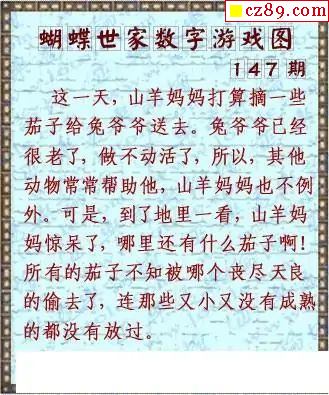 cz89.com
蝴蝶世家数字游戏图
147期
这一天，山羊妈妈打算摘一些
茄子给兔爷爷送去。兔爷爷已经
很老了，做不动活了，所以，其他
动物常常帮助他，山羊妈妈也不例
外。可是，到了地里一看，山羊妈
妈惊呆了，哪里还有什么茄子啊!
所有的茄子不知被哪个丧尽天良
的偷去了，连那些又小又没有成熟
的都没有放过。